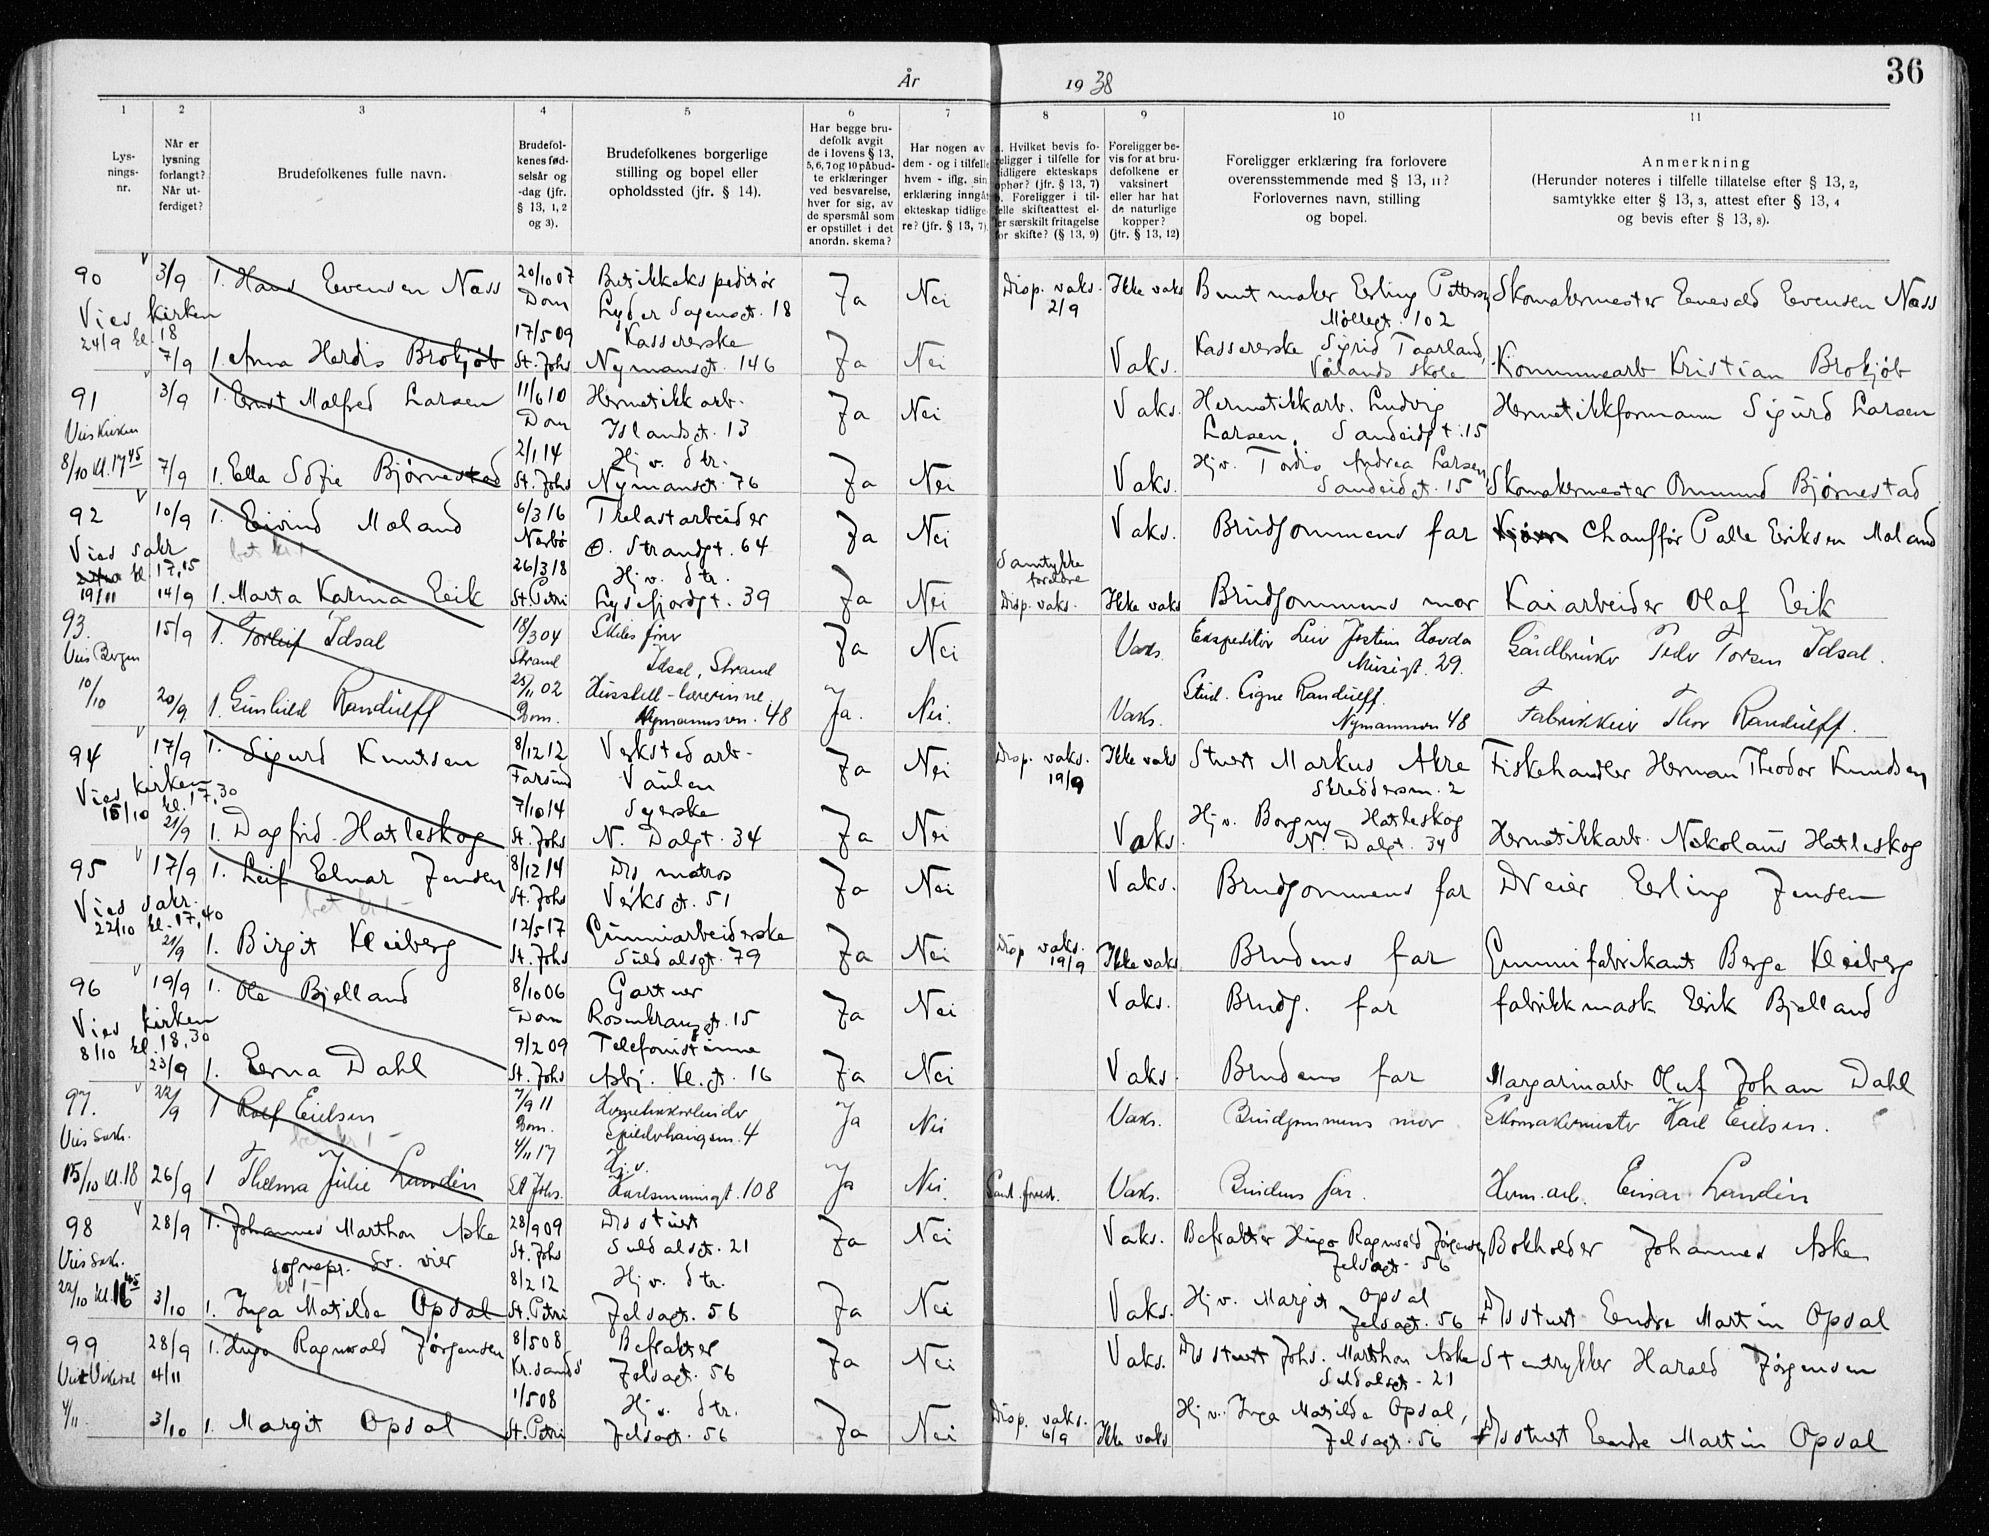 36
År 1938
1 2 3 4 5 6 7 8 9 10 11
Lys-
nings-
nr.
Når er
lysning
forlangt?
Når ut-
ferdiget?
Brudefolkenes fulle navn.
Brudefol-
kenes fød-
selsår og
-dag (jfr.
§ 13, 1, 2
og 3).
Brudefolkenes borgerlige
stilling og bopel eller
opholdssted (jfr. § 14).
Har begge bru-
defolk avgit
de i lovens § 13,
5, 6, 7 og 10 påbud-
te erklæringer
ved besvarelse,
hver for sig, av
de spørsmål som
er opstillet i det
anordn. skema?
Har nogen av
dem - og i tilfelle
hvem - iflg. sin
erklæring inngåt
ekteskap tidlige-
re? (jfr. § 13, 7)
a. Hvilket bevis fo-
religger i tilfelle for
tidligere ekteskaps
ophør? (jfr. § 13, 7)
b. Foreligger i til-
felle skifteattest el-
ler særskilt fritagelse
for skifte? (§ 13, 9)
Foreligger be-
vis for at bru-
defolkene er
vaksinert
eller har hat
de naturlige
kopper?
(jfr. § 13, 12)
Foreligger erklæring fra forlovere
overensstemmende med § 13, 11?
Forlovernes navn, stilling
og bopel.
Anmerkning
(Herunder noteres i tilfelle tillatelse efter § 13, 2,
samtykke efter § 13, 3, attest efter § 13, 4
og bevis efter § 13, 8).
90 3/9 1. Hans Evensen Næss 20/10 07 Butikkekspeditør Ja Nei Disp. vaks. Ikke vaks Buntmaker Erling Petters Skomakermester Enevald Evensen Næss
Vies kirken Dom Lyder Sagensgt. 18 2/9 Møllegt. 102
24/9 kl. 18 17/5 09 Kassererske Kassererske Sigrid Taarland,
7/9 1. Anna Herdis Brokjøb St. Johs Nymansgt. 146 Ja Nei Vaks. Vålands skole Kommunearb Kristian Brokjøb
91 3/9 1. Ernst Malfred Larsen 11/6 10 Hermetikkarb. Ja Nei Vaks. Hermetikkarb. Ludvig Hermetikkformann Sigurd Larsen
Vies Kirken Dom Islandsgt. 13 Larsen, Sandeidgt. 15
8/10 Kl. 17 45 2/1 14 Hj v. str. Hj v. Tordis Andrea Larsen
7/9 1. Ella Sofie Bjørnestad St. Johs Nymansgt. 76 Ja Nei Vaks. Sandeidgt. 15 Skomakermester Omund Bjørnestad
92 10/9 1. Eivind Moland 6/3 16 Trelastarbeider Ja Nei Vaks. Brudgommens far Chauffør Palle Eriksen Moland
Vies sakr. bet kr 1- Nærbø Ø. Strandgt. 64 Samtykke
kl. 17,15 26/3 18 Hj v. str. foreldre
19/11 14/9 1. Marta Karina Eeik St. Petri Lysefjordgt. 39 Ja Nei Disp. vaks. Ikke vaks Brudgommens mor Kaiarbeider Olaf Eeik
93. 15/9 1. Torleif Idsal 18/3 04 Ja Nei Vaks. Ekspeditør Leiv Jostein Hovda Gårdbruker Peder Torsen Idsal.
Vies Bergen Strand Idsal, Strand Muségt. 29.
10/10 25/11 02 Husstell-lærerinne Stud. Signe Randulff
20/9 1. Gunhild Randulff Dom. Nymannsvn. 48 Ja. Nei. Vaks. Nymannsvn 48 Thor Randulff.
94 17/9 1. Sigurd Knutsen 8/12 12 Verkstedarb. Ja Nei Disp. vaks. Ikke vaks Stuert Markus Akre Fiskehandler Herman Theodor Knudsen
Vies kirken Farsund Vaulen 19/9 Skreddersm. 2
15/10 kl. 17,30 7/10 14 Syerske Hj v. Borgny Hatleskog
21/9 1. Dagfrid Hatleskog St. Johs N. Dalgt. 34 Ja Nei Vaks. N. Dalgt. 34 Hermetikkarb. Nikolaus Hatleskog
95 17/9 1. Leif Elmar Jensen 8/12 14 D/s matros Ja Nei Vaks. Brudgommens far Dreier Erling Jensen
Vies sakr. bet kr 1- St. Johs Verksgt. 51
22/10 kl. 17,40 12/5 17 Gummiarbeiderske
21/9 1. Birgit Kleiberg St. Johs Suldalsgt. 79 Ja Nei Disp vaks. 19/9 Ikke vaks Brudens far Gummifabrikant Berge Kleiberg
96 19/9 1. Ole Bjelland 8/10 06 Gartner Ja Nei Vaks. Brudg. far fabrikkmask Eerik Bjelland
Vies kirken Dom Rosenkranzgt. 15
8/10 kl. 18,30 9/2 09 Telefonistinne
23/9 1. Erna Dahl St. Johs Asbj. Kl. gt. 16 Ja Nei Vaks. Brudens far Margarinarb Oluf Johan Dahl
97. 22/9 1 Rolf Eielsen 7/9 11 Hermetikkarbeider Ja Nei Vaks. Brudgommens mor Skomakermester Karl Eielsen.
Vies Sakr. bet kr 1- Dom. Spilderhaugsm. 4
15/10 Kl. 18 4/11 17 Hj. v.
26/9 1 Thelma Julie Lundin St Johs. Karlsminnegt. 108 Ja Nei. Vaks. Brudens far. Herm. arb. Einar Lundin
98 28/9 1. Johannes Marthon Aske 28/9 09 D/s stuert Ja Nei Vaks. Befrakter Hugo Ragnvald Jørgensen Bokholder Johannes Aske
Vies Sakr. sognepr. Sv. vier St. Johs Suldalsgt. 21 Jelsagt. 56
22/10 Kl. 16 45 kr 1- 8/2 12 Hj v. str. Hj v. Margit Opsal
3/10 1. Inga Matilde Opsal St. Petri Jelsagt. 56 Ja Nei Vaks. Jelsagt. 56 D/s stuert Endre Martin Opsal
99 28/9 1. Hugo Ragnvald Jørgensen 8/5 08 Befrakter Ja Nei Vaks. D/s stuert Johs. Marthon Aske Stentrykker Harald Jørgensen
4/11 Kr.sand S Jelsagt. 56 Suldalsgt. 21
4/11. 1/5 08 Hj v. str. Hj v. Inga Matilde Opsal,
3/10 1. Margit Opsal St. Petri Jelsagt. 56 Ja Nei Disp. vaks. 6/9 Ikke vaks Jelsagt. 56 D/s stuert Endre Martin Opsal